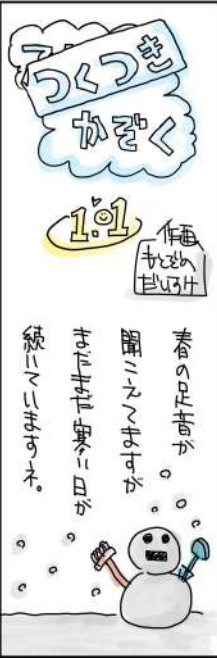 つくつき
かぞく
1.1
作画
もとどの
だいすけ
春の足音が
聞こえてますが
まだまだ寒い日が
続いていますネ。